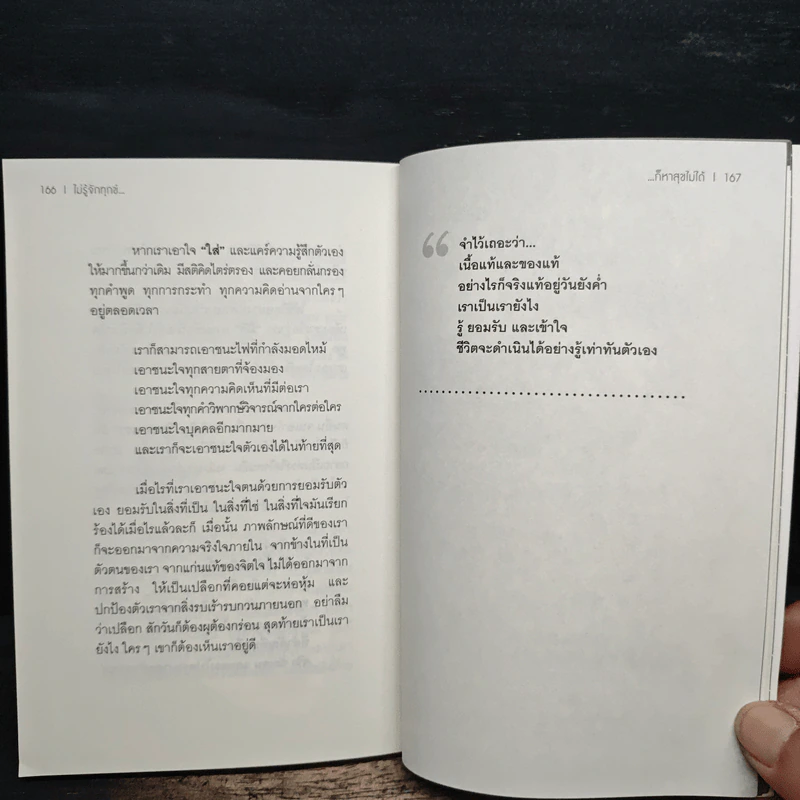 166 | ไม่รู้จักทุกข์...
หากเราเอาใจ “ใส่” และแคร์ความรู้สึกตัวเอง
ให้มากขึ้นกว่าเดิม มีสติคิดไตร่ตรอง และคอยกลั่นกรอง
ทุกคำพูด ทุกการกระทำ ทุกความคิดอ่านจากใครๆ
อยู่ตลอดเวลา
เราก็สามารถเอาชนะไฟที่กำลังมอดไหม้
เอาชนะใจทุกสายตาที่จ้องมอง
เอาชนะใจทุกความคิดเห็นที่มีต่อเรา
เอาชนะใจทุกคำวิพากษ์วิจารณ์จากใครต่อใคร
เอาชนะใจบุคคลอีกมากมาย
และเราก็จะเอาชนะใจตัวเองได้ในท้ายที่สุด
เมื่อไรที่เราเอาชนะใจตนด้วยการยอมรับตัว
เอง ยอมรับในสิ่งที่เป็น ในสิ่งที่ใช่ ในสิ่งที่ใจมันเรียก
ร้องได้เมื่อไรแล้วละก็ เมื่อนั้น ภาพลักษณ์ที่ดีของเรา
ก็จะออกมาจากความจริงใจภายใน จากข้างในที่เป็น
ตัวตนของเรา จากแก่นแท้ของจิตใจ ไม่ได้ออกมาจาก
การสร้าง ให้เป็นเปลือกที่คอยแต่จะห่อหุ้ม และ
ปกป้องตัวเราจากสิ่งรบเร้ารบกวนภายนอก อย่าลืม
ว่าเปลือก สักวันก็ต้องผุต้องกร่อน สุดท้ายเราเป็นเรา
ยังไง ใครๆ เขาก็ต้องเห็นเราอยู่ดี
...ก็หาสุขไม่ได้ | 167
“
จำไว้เถอะว่า...
เนื้อแท้และของแท้
อย่างไรก็จริงแท้อยู่วันยังค่ำ
เราเป็นเรายังไง
รู้ ยอมรับ และเข้าใจ
ชีวิตจะดำเนินได้อย่างรู้เท่าทันตัวเอง